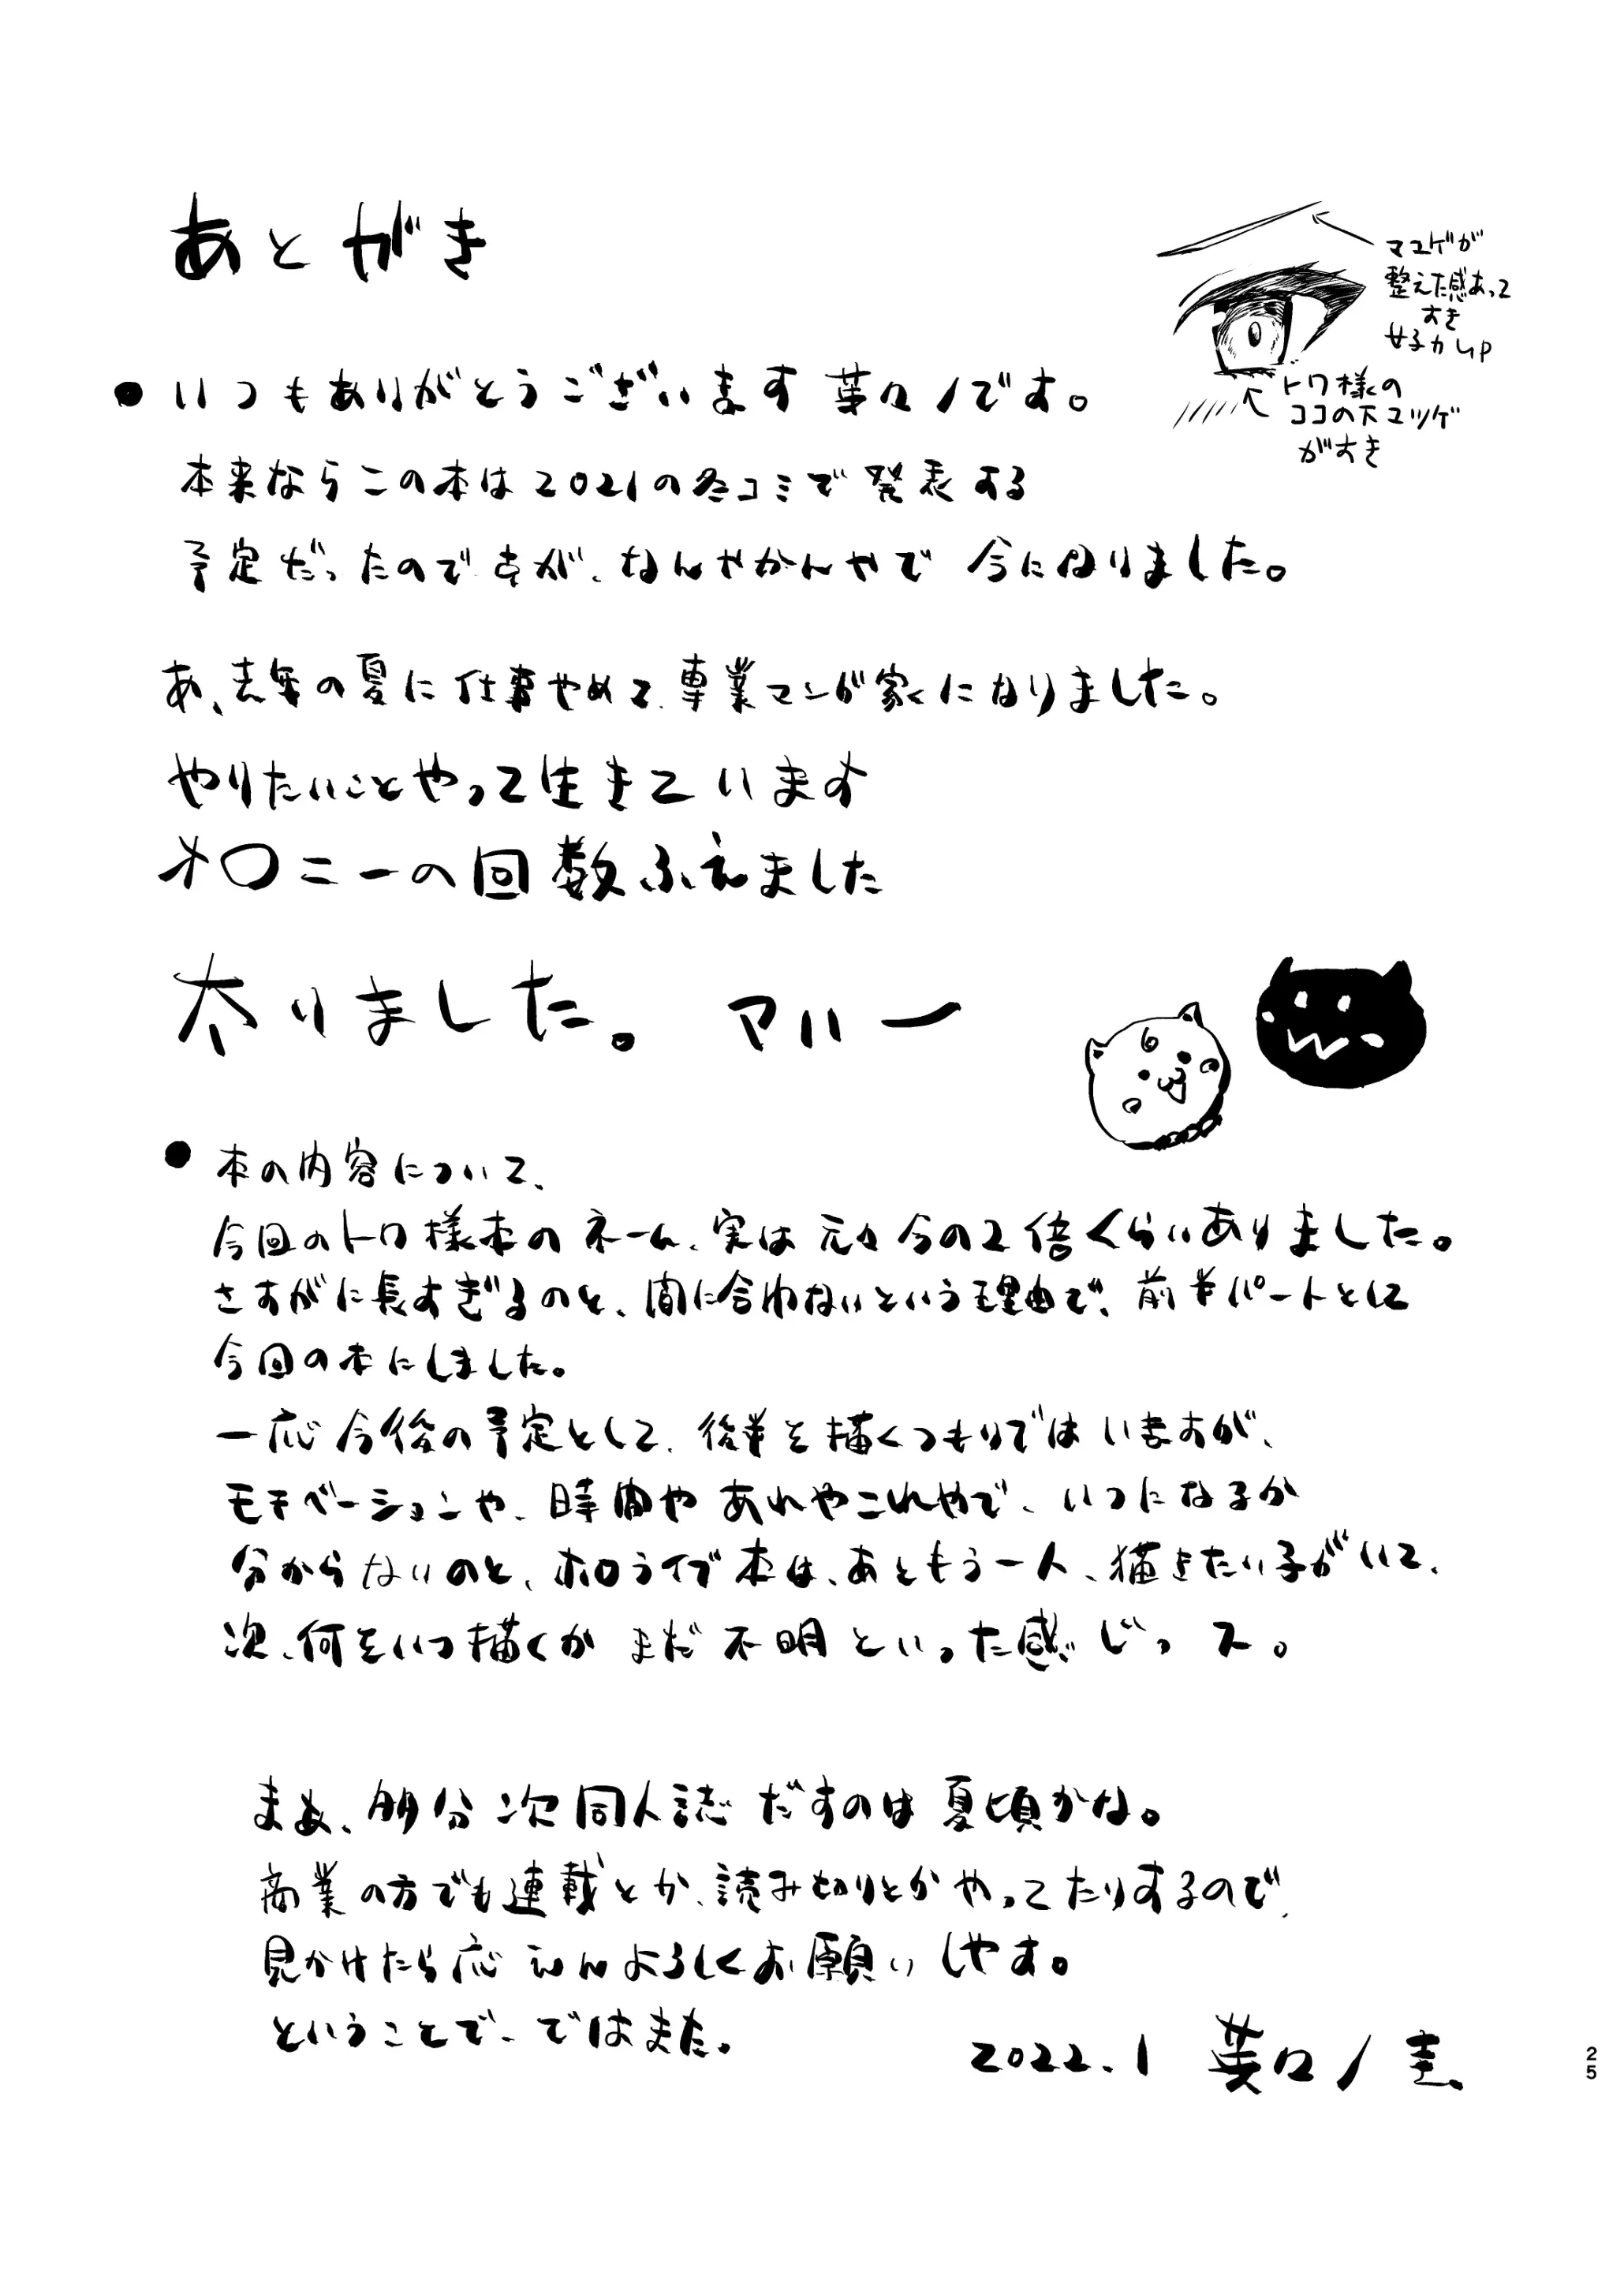 あとがき
マユゲが
整えた感あって
すき
女子力UP
トワ様の
ココの下マツゲ
がすき
●いつもありがとうございます葉々ノです。
本来ならこの本は2021の冬コミで発表する
予定だったのですが、なんやかんやで今になりました。
あ、去年の夏に仕事やめて、専業マンガ家になりました。
やりたいことやって生きています
オ〇ニーの回数ふえました
太りました。マハー
●本の内容について、
今回のトワ様本のネーム、実は元々今の2倍くらいありました。
さすがに長すぎるのと、間に合わないという理由で、前半パートとして
今回の本にしました。
一応今後の予定として、後半を描くつもりではいますが、
モチベーションや、時間やあれやこれやで、いつになるか
分からないのと、ホロライブ本は、あともう一人、描きたい子がいて、
次、何をいつ描くかまだ不明といった感じっス。
まあ、多分次同人誌だすのは夏頃かな。
商業の方でも連載とか、読み切りとかやってたりするので、
見かけたら応えんよろしくお願いしやす。
ということで、ではまた。
2022.1 葉々ノ圭
25